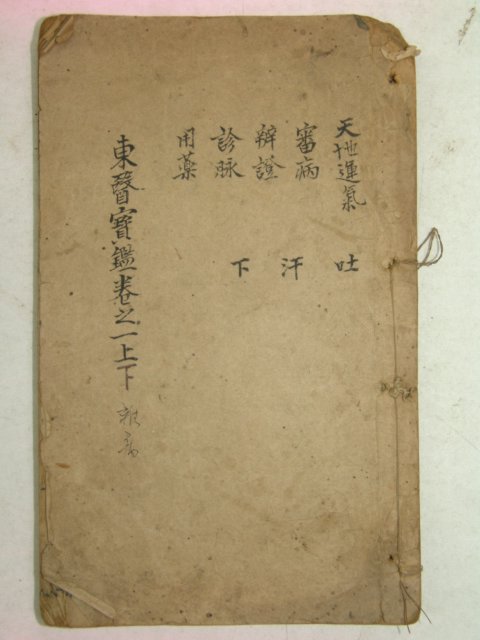 天地運氣
審病
辨證
診脉
用藥
吐
汗
下
東醫寶鑑卷之一上下